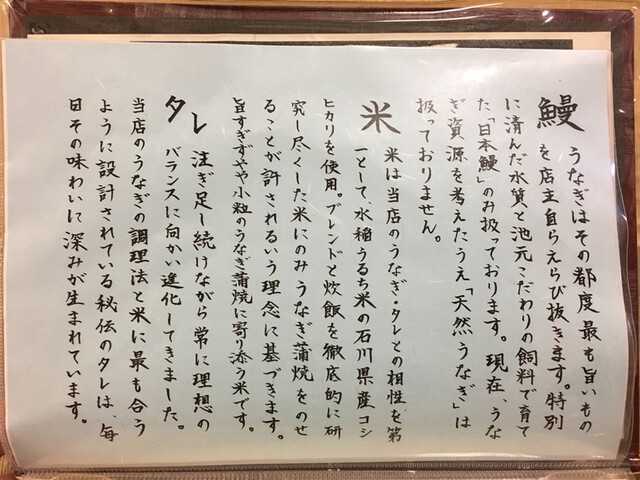 鰻 うなぎはその都度最も旨いもの
を店主自らえらび抜きます。特別
に清んだ水質と池元こだわりの飼料で育て
た「日本鰻」のみ扱っております。現在、うな
ぎ資源を考えたうえ「天然うなぎ」は
扱っておりません。
米 米は当店のうなぎ・タレとの相性を第
一として、水稲うるち米の石川県産コシ
ヒカリを使用。ブレンドと炊飯を徹底的に研
究し尽くした米にのみうなぎ蒲焼をのせ
ることが許されるいう理念に基づきます。
旨すぎずやや小粒のうなぎ蒲焼に寄り添う米です。
タレ 注ぎ足し続けながら常に理想の
バランスに向かい進化してきました。
当店のうなぎの調理法と米に最も合う
ように設計されている秘伝のタレは、毎
日その味わいに深みが生まれています。